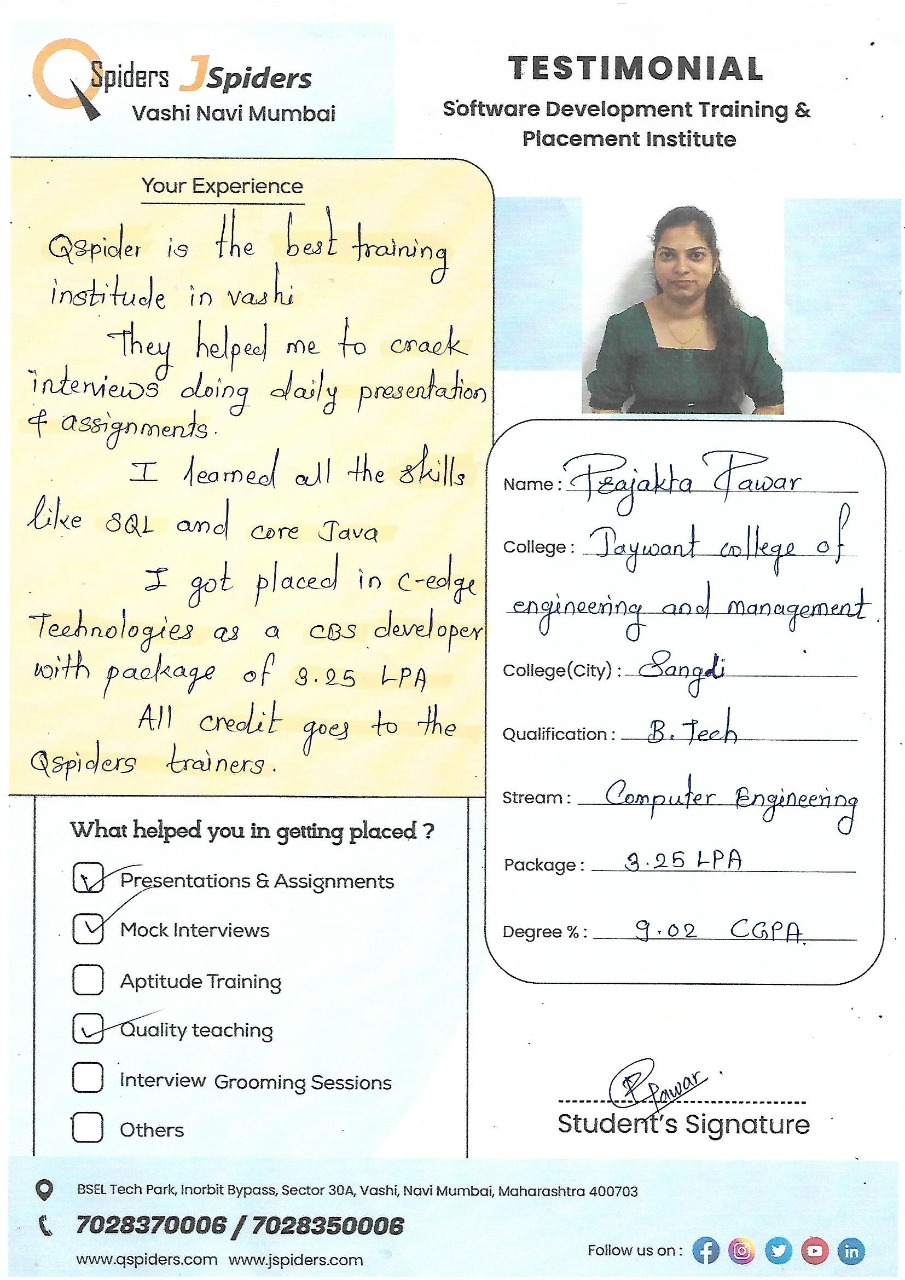 QSpiders JSpiders
Vashi Navi Mumbai
TESTIMONIAL
Software Development Training &
Placement Institute
Your Experience
QSpider is the best training
institude in vashi
They helped me to crack
interviews doing daily presentation
& assignments.
I learned all the skills
like SQL and core Java
I got placed in C-edge
Technologies as a CBS developer
with package of 3.25 LPA
All credit goes to the
Qspiders trainers.
What helped you in getting placed ?
Presentations & Assignments
Mock Interviews
Aptitude Training
Quality teaching
Interview Grooming Sessions
Others
Name : Prajakta Pawar
College : Jaywant college of
engineering and management
College(City) : Sangli
Qualification : B. Tech
Stream : Computer Engineering
Package : 3.25 LPA
Degree % : 9.02 CGPA.
PPawar
Student's Signature
BSEL Tech Park, Inorbit Bypass, Sector 30A, Vashi, Navi Mumbai, Maharashtra 400703
7028370006 / 7028350006
www.qspiders.com www.jspiders.com
Follow us on :